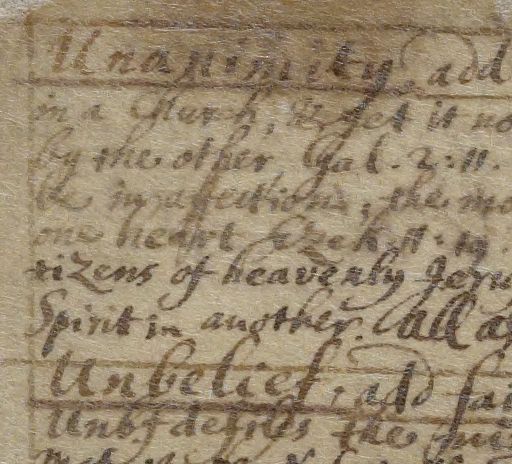 Unanimity, add
in a Church, & yet it no
by the other, Gal. 2:11.
be in affections, the mo
one heart Ezek. 11:19.
tizens of heavenly Jeru
Spirit in another. All a
Unbelief, add fai
Unb: defiles the